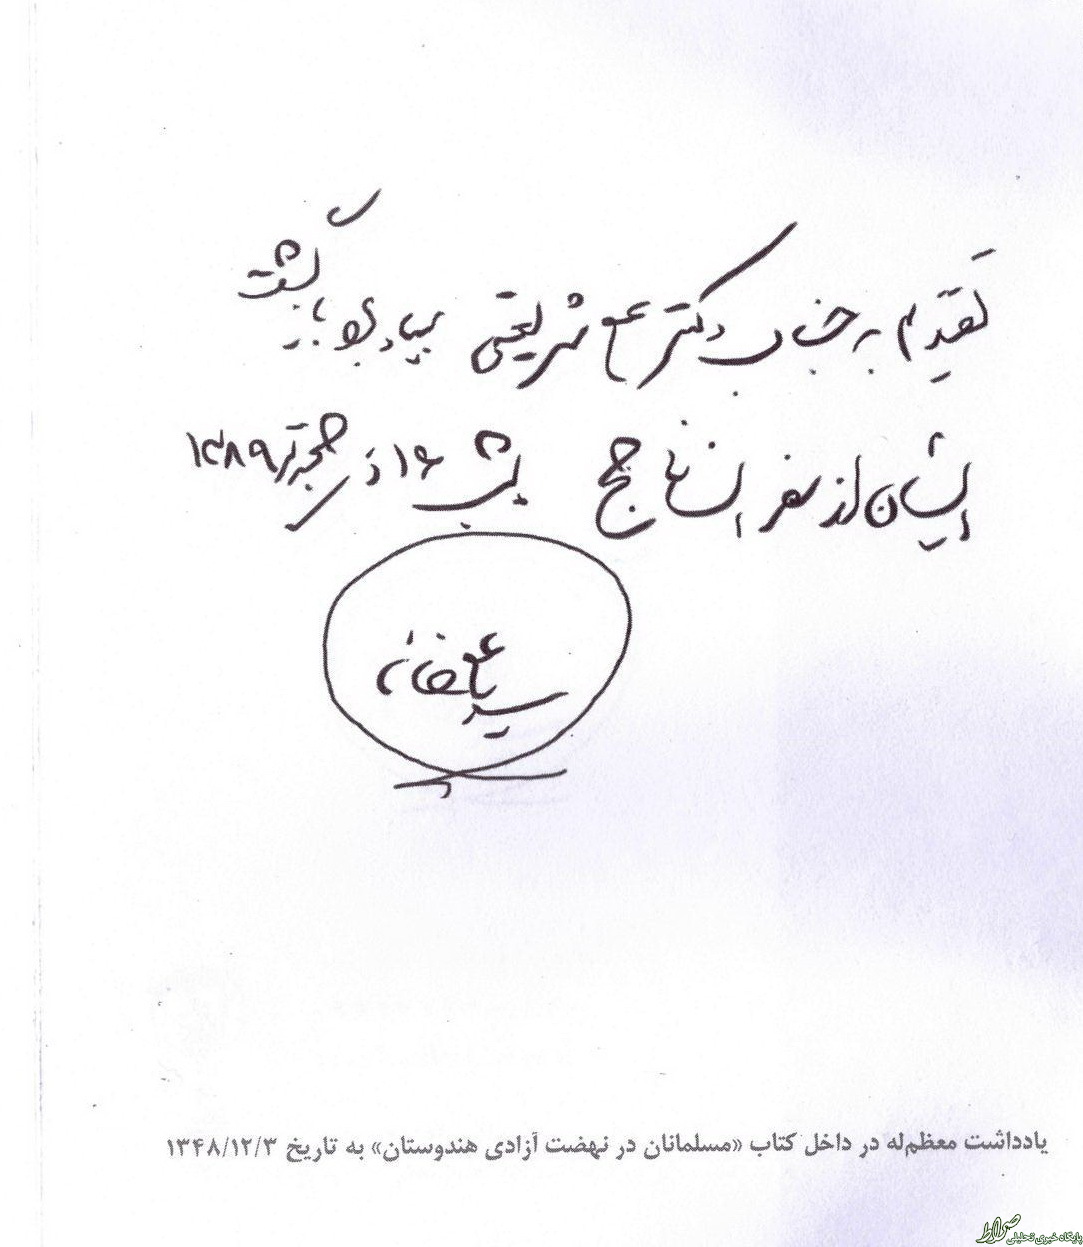 تقدیم به جناب دکتر علی شریعتی بیادبود بازگشت
ایشان از سفر انسانساز حج شب ۱۶ ذیحجه ۱۳۸۹
سید علی خامنه‌ای
یادداشت معظم‌له در داخل کتاب «مسلمانان در نهضت آزادی هندوستان» به تاریخ ۱۳۴۸/۱۲/۳
صراط
پایگاه خبری تحلیلی